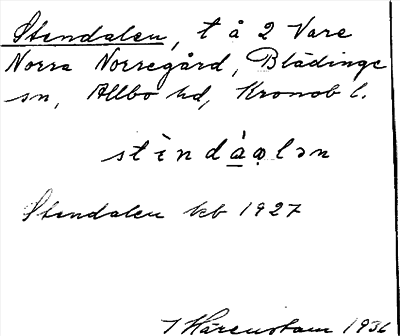 Stendalen, t å 2 Vare
Norra Norregård, Blädinge
sn, Allbo hd, Kronob l.
stèndàǫlən
Stendalen kb 1927
I Härenstam 1936